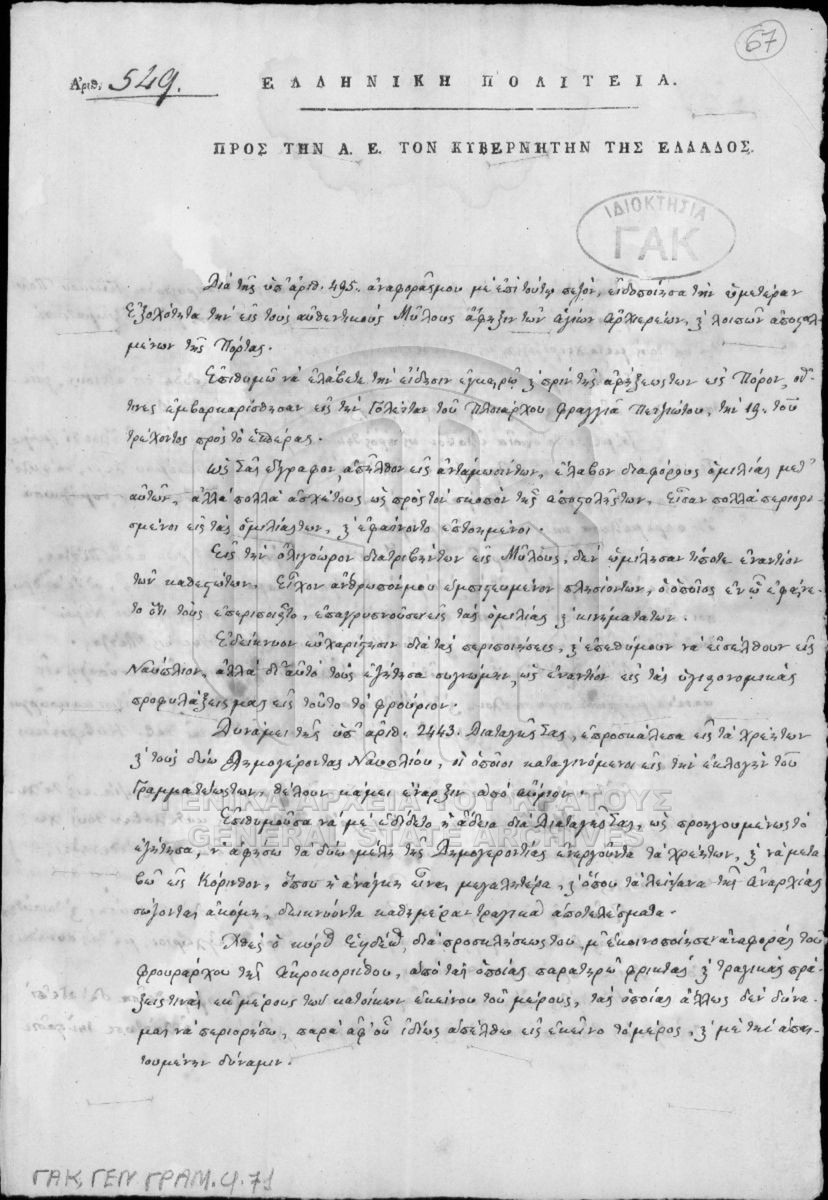 67
Ἀριθ. 549.
ΕΛΛΗΝΙΚΗ ΠΟΛΙΤΕΙΑ.
ΠΡΟΣ ΤΗΝ Α. Ε. ΤΟΝ ΚΥΒΕΡΝΗΤΗΝ ΤΗΣ ΕΛΛΑΔΟΣ.
ΙΔΙΟΚΤΗΣΙΑ
ΓΑΚ
Διὰ τῆς ὑπ' ἀριθ. 495. ἀναφορᾶς μου μὲ ἐπὶ τούτῳ πεζὸν, εἰδοποίησα τὴν ὑμετέραν
Ἐξοχότητα τὴν εἰς τοὺς αὐθεντικοὺς Μύλους ἄφιξιν τῶν ἁγίων Ἀρχιερέων, ϗ λοιπῶν ἀποςαλ
μένων τῆς Πόρτας.
Ἐπιθυμῶ νὰ ἐλάβετε τὴν εἴδησιν ἐγκαίρως ϗ πρὶν τῆς ἀφίξεώς των εἰς Πόρον, οἵ
τινες ἐμβαρκαρίσθησαν εἰς τὴν Γολέτταν τοῦ Πλοιάρχου Φραγγιᾶ, τὴν 19. τοῦ
τρέχοντος πρὸς τὸ ἑσπέρας.
Ὡς Σᾶς ἔγραφον, ἀπελθὼν εἰς ἀντάμωσίν των, ἔλαβον διαφόρους ὁμιλίας μετ'
αὐτῶν, ἀλλὰ πολλὰ ἀσχέτους ὡς πρὸς τὸν σκοπὸν τῆς ἀποςολῆς των. Εἶσαν πολλὰ περιορι
σμένοι εἰς τὰς ὁμιλίας των, ϗ ἐφαίνοντο ἐπτοημένοι.
Εἰς τὴν ὀλιγόωρον διατριβήν των εἰς Μύλους, δὲν ὡμίλησαν τίποτε ἐναντίον
τῶν καθεςώτων. Εἶχον ἄνθρωπόν μου ἐμπιςευμένον πλησίον των, ὁ ὁποῖος ἐν ᾧ ἐφαίνε
το ὅτι τοὺς ἐπεριποιεῖτο, ἐπαγρυπνοῦσεν εἰς τὰς ὁμιλίας ϗ κινήματά των.
Ἐδείκνυον εὐχαρίςησιν διὰ τὰς περιποιήσεις, ϗ ἐπεθύμουν νὰ εἰσέλθουν εἰς
Ναύπλιον, ἀλλὰ δι' αὐτὸ τοὺς ἐζήτησα συγνώμην, ὡς ἐναντίον εἰς τὰς ὑγειονομικὰς
προφυλάξεις μας εἰς τοῦτο τὸ φρούριον.
Δυνάμει τῆς ὑπ' ἀριθ. 2443. Διαταγῆς Σας, ἐπροσκάλεσα εἰς τὰ χρέη των
ϗ τοὺς δύω Δημογέροντας Ναυπλίου, οἱ ὁποῖοι καταγινόμενοι εἰς τὴν ἐκλογὴν τοῦ
Γραμματέως των, θέλουν κάμει ἔναρξιν ἀπὸ αὔριον.
ΓΕΝΙΚΑ ΑΡΧΕΙΑ ΤΟΥ ΚΡΑΤΟΥΣ
GENERAL STATE ARCHIVES
Ἐπιθυμοῦσα νὰ μὲ ἐδίδετο ἡ ἄδεια διὰ Διαταγῆς Σας, ὡς προηγουμένως τὸ
ἐζήτησα, ν' ἀφήσω τὰ δύω μέλη τῆς Δημογεροντίας ἐνεργοῦντα τὰ χρέη των, ϗ νὰ μετα
βῶ εἰς Κόρινθον, ὅπου ἡ ἀνάγκη εἶναι μεγαλητέρα, ϗ ὅπου τὰ λείψανα τῆς ἀναρχίας
σώζονται ἀκόμη, δεικνύοντα καθημέραν τραγικὰ ἀποτελέσματα.
Χθὲς ὁ διὰ προσκλήσεώς του, μ' ἐκοινοποίησεν ἀναφορὰς τοῦ
φρουράρχου τῆς Ἀκροκορίνθου, ἀπὸ τὰς ὁποίας παρατηρῶ φρικτὰς ϗ τραγικὰς πρά
ξεις τινὰς ἐκ μέρους τῶν κατοίκων ἐκείνου τοῦ μέρους, τὰς ὁποίας ἄλλως δὲν δύνα
μαι νὰ περιορήσω, παρὰ ἀφ' οὗ ἰδίως ἀπέλθω εἰς ἐκεῖνο τὸ μέρος, ϗ μὲ τὴν ἀπαι
τουμένην δύναμιν.
ΓΑΚ, ΓΕΝ ΓΡΑΜ. φ. 71